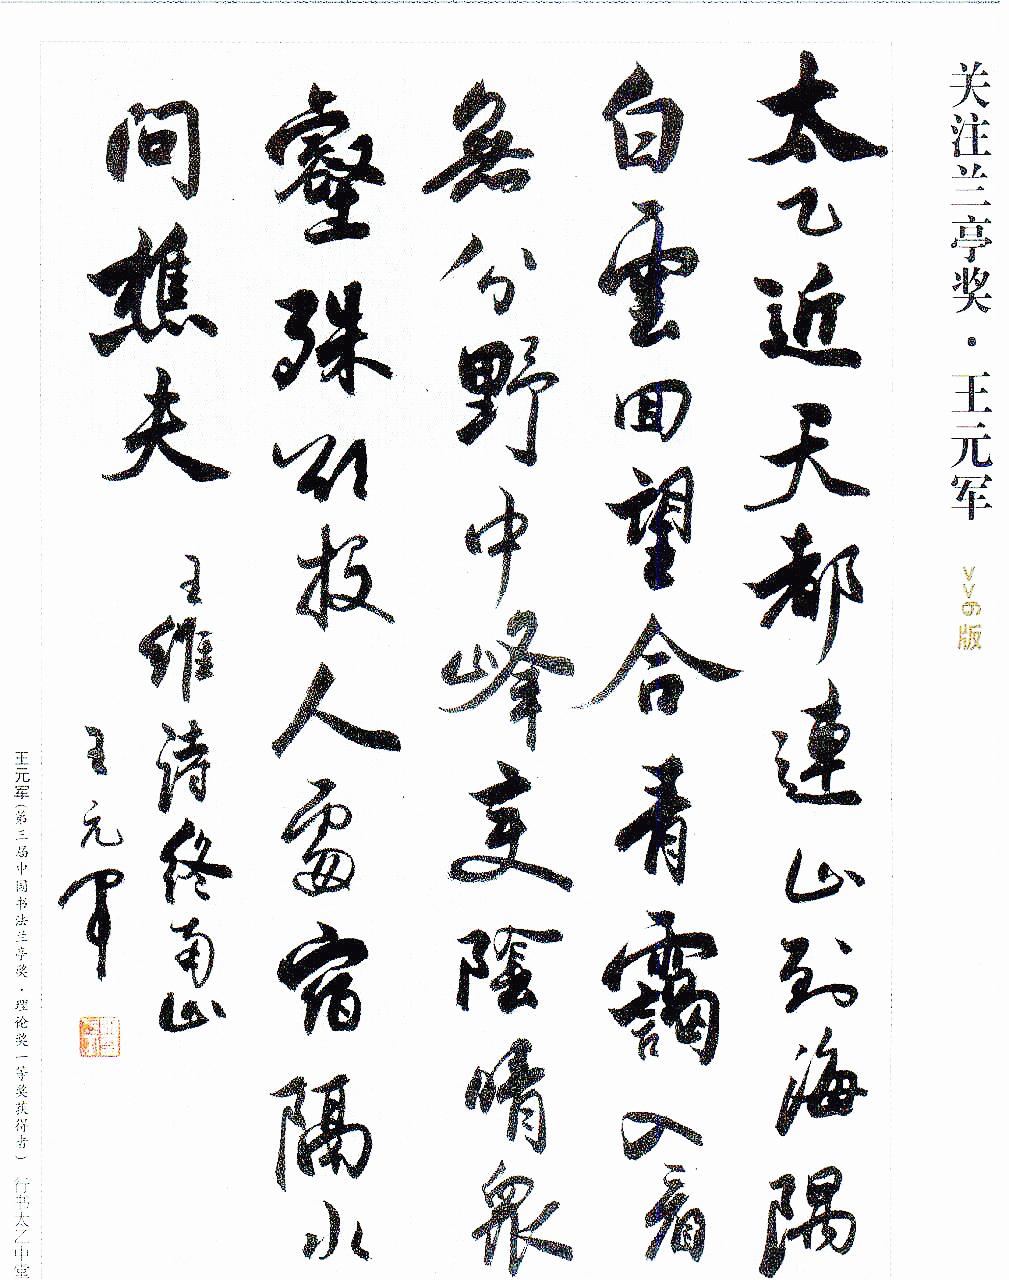 关注兰亭奖·王元军 >>6版
太乙近天都連山到海隅
白雲回望合青靄入看
無分野中峰变陰晴衆
壑殊欲投人處宿隔水
問樵夫 王維詩終南山
王元军
王元军(第三届中国书法兰亭奖·理论奖一等奖获得者) 行书太乙中堂